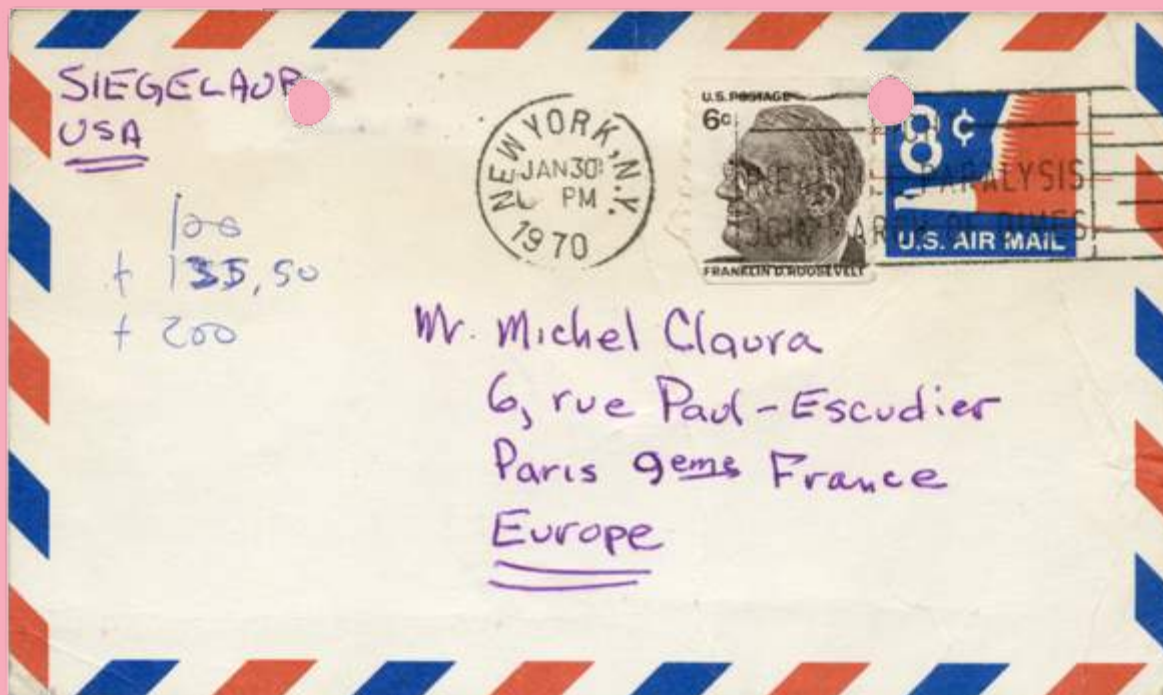 SIEGELAUB
USA
100
+ 135,50
+ 200
NEW YORK, N.Y.
JAN 30
PM
1970
U.S. POSTAGE
6c
FRANKLIN D. ROOSEVELT
8¢
U.S. AIR MAIL
PARALYSIS
JOIN MARCH OF DIMES
Mr. Michel Claura
6, rue Paul-Escudier
Paris 9eme France
Europe